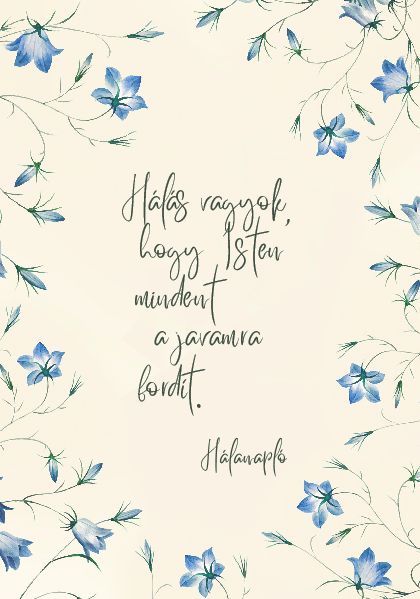 Hálás vagyok,
hogy Isten
mindent
a javamra
fordít.
Hálanapló